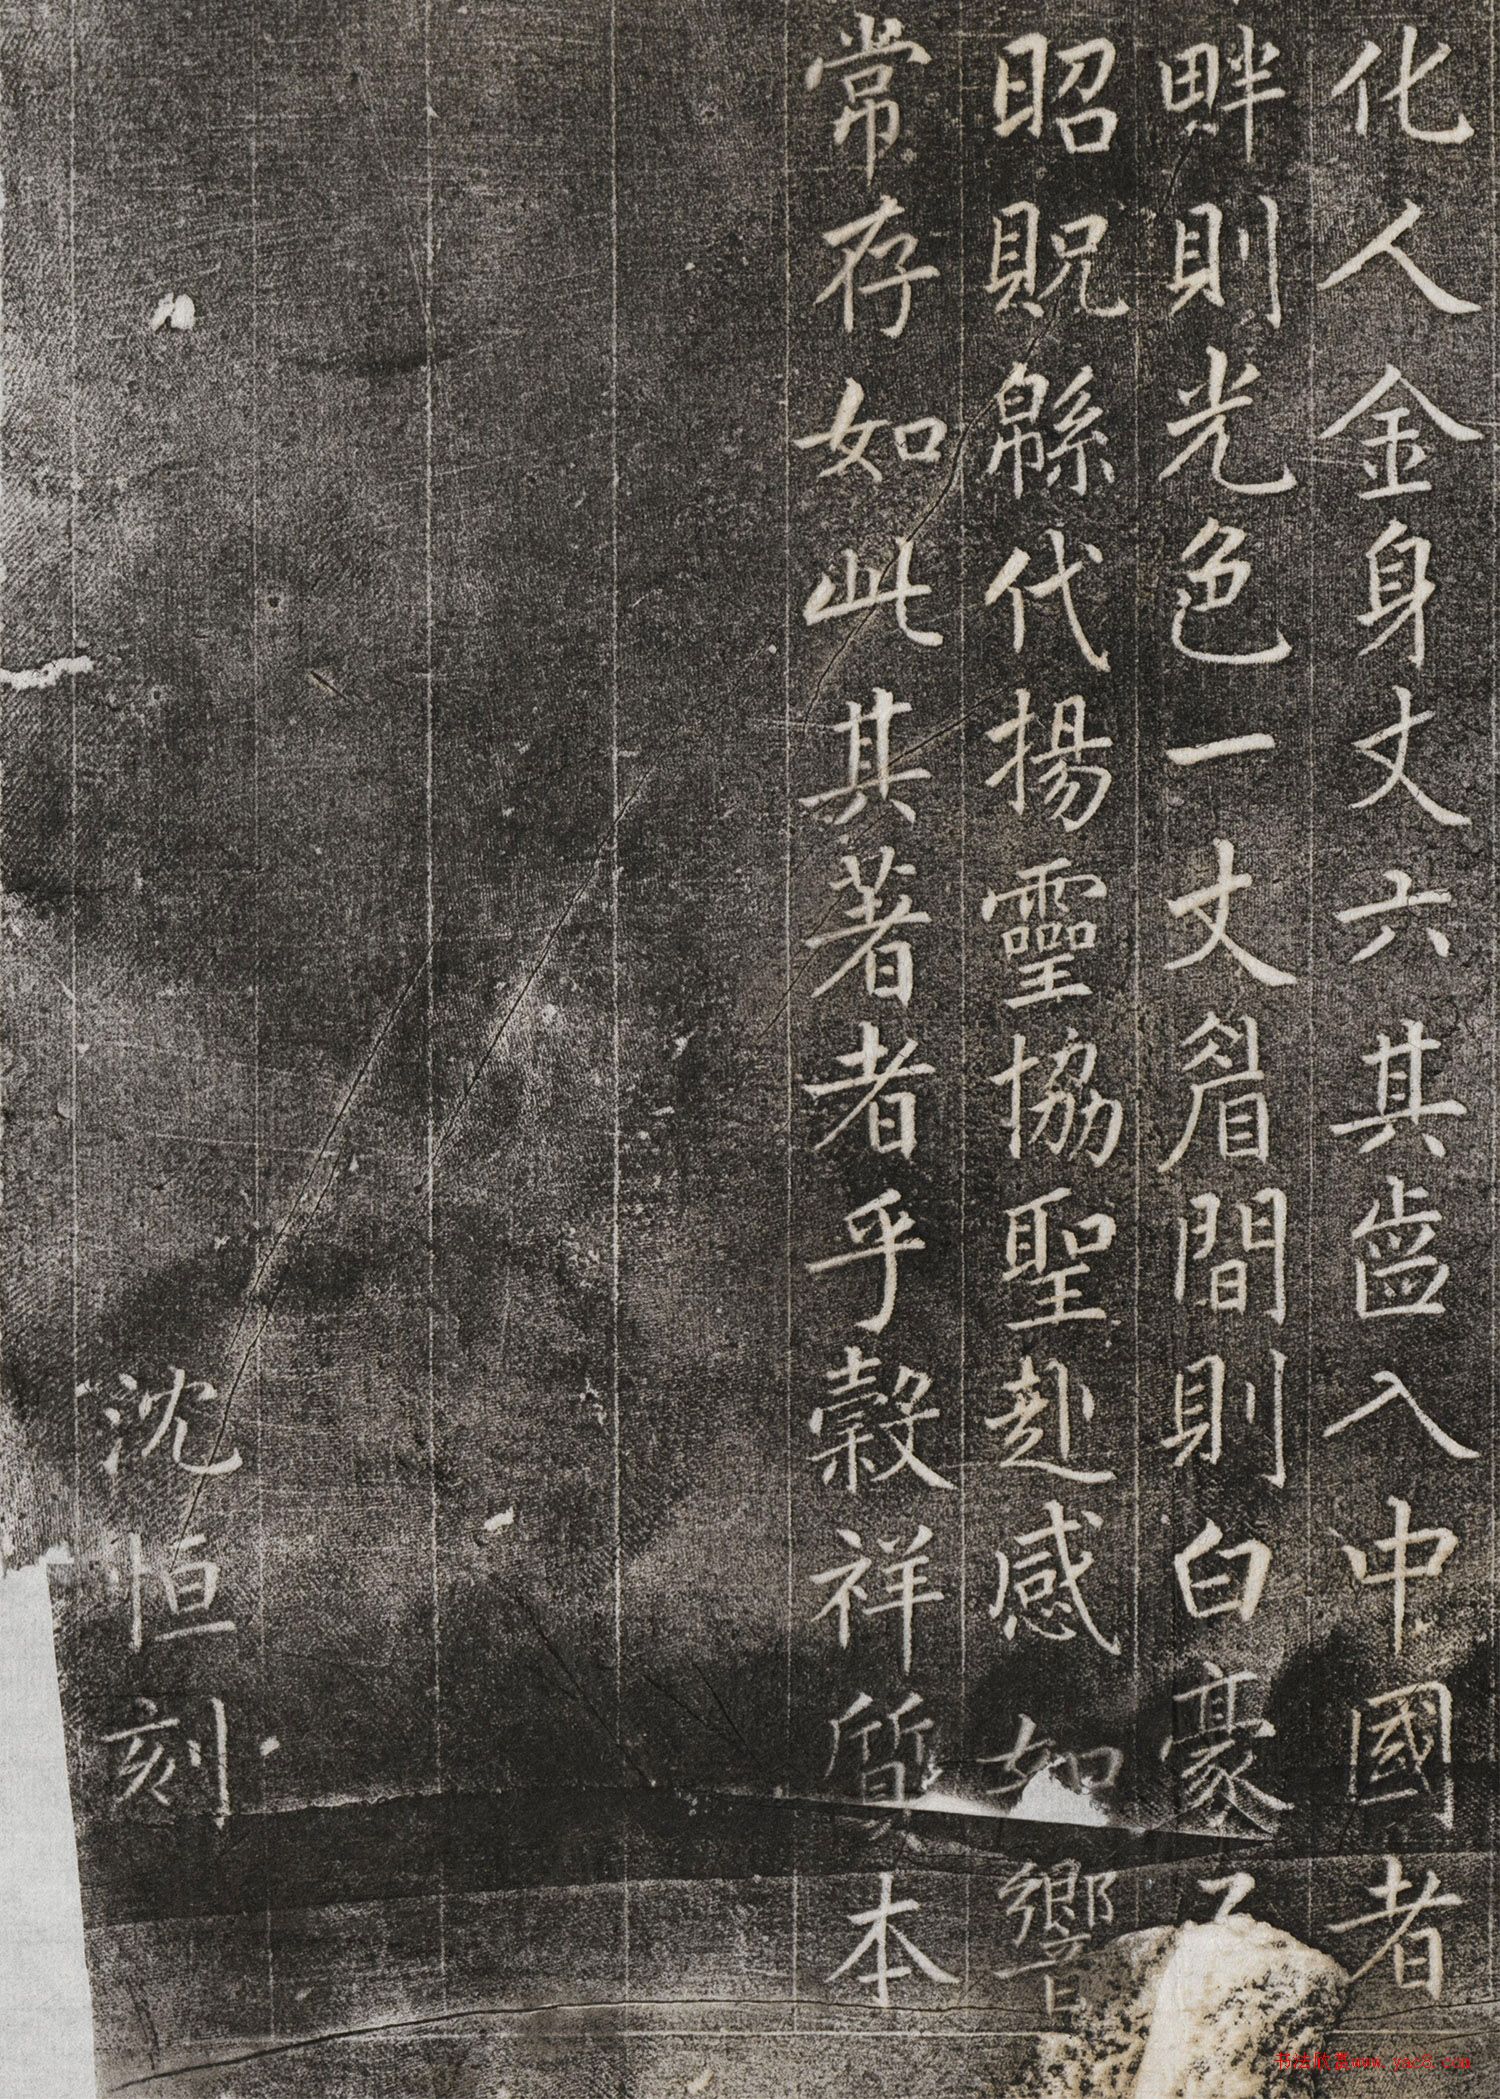 化人金身丈六其齒入中國者
畔則光色一丈眉間則白豪
昭貺緜代揚靈協聖赴感如響
常存如此其著者乎穀祥質本
沈恒刻
www.yac8.com